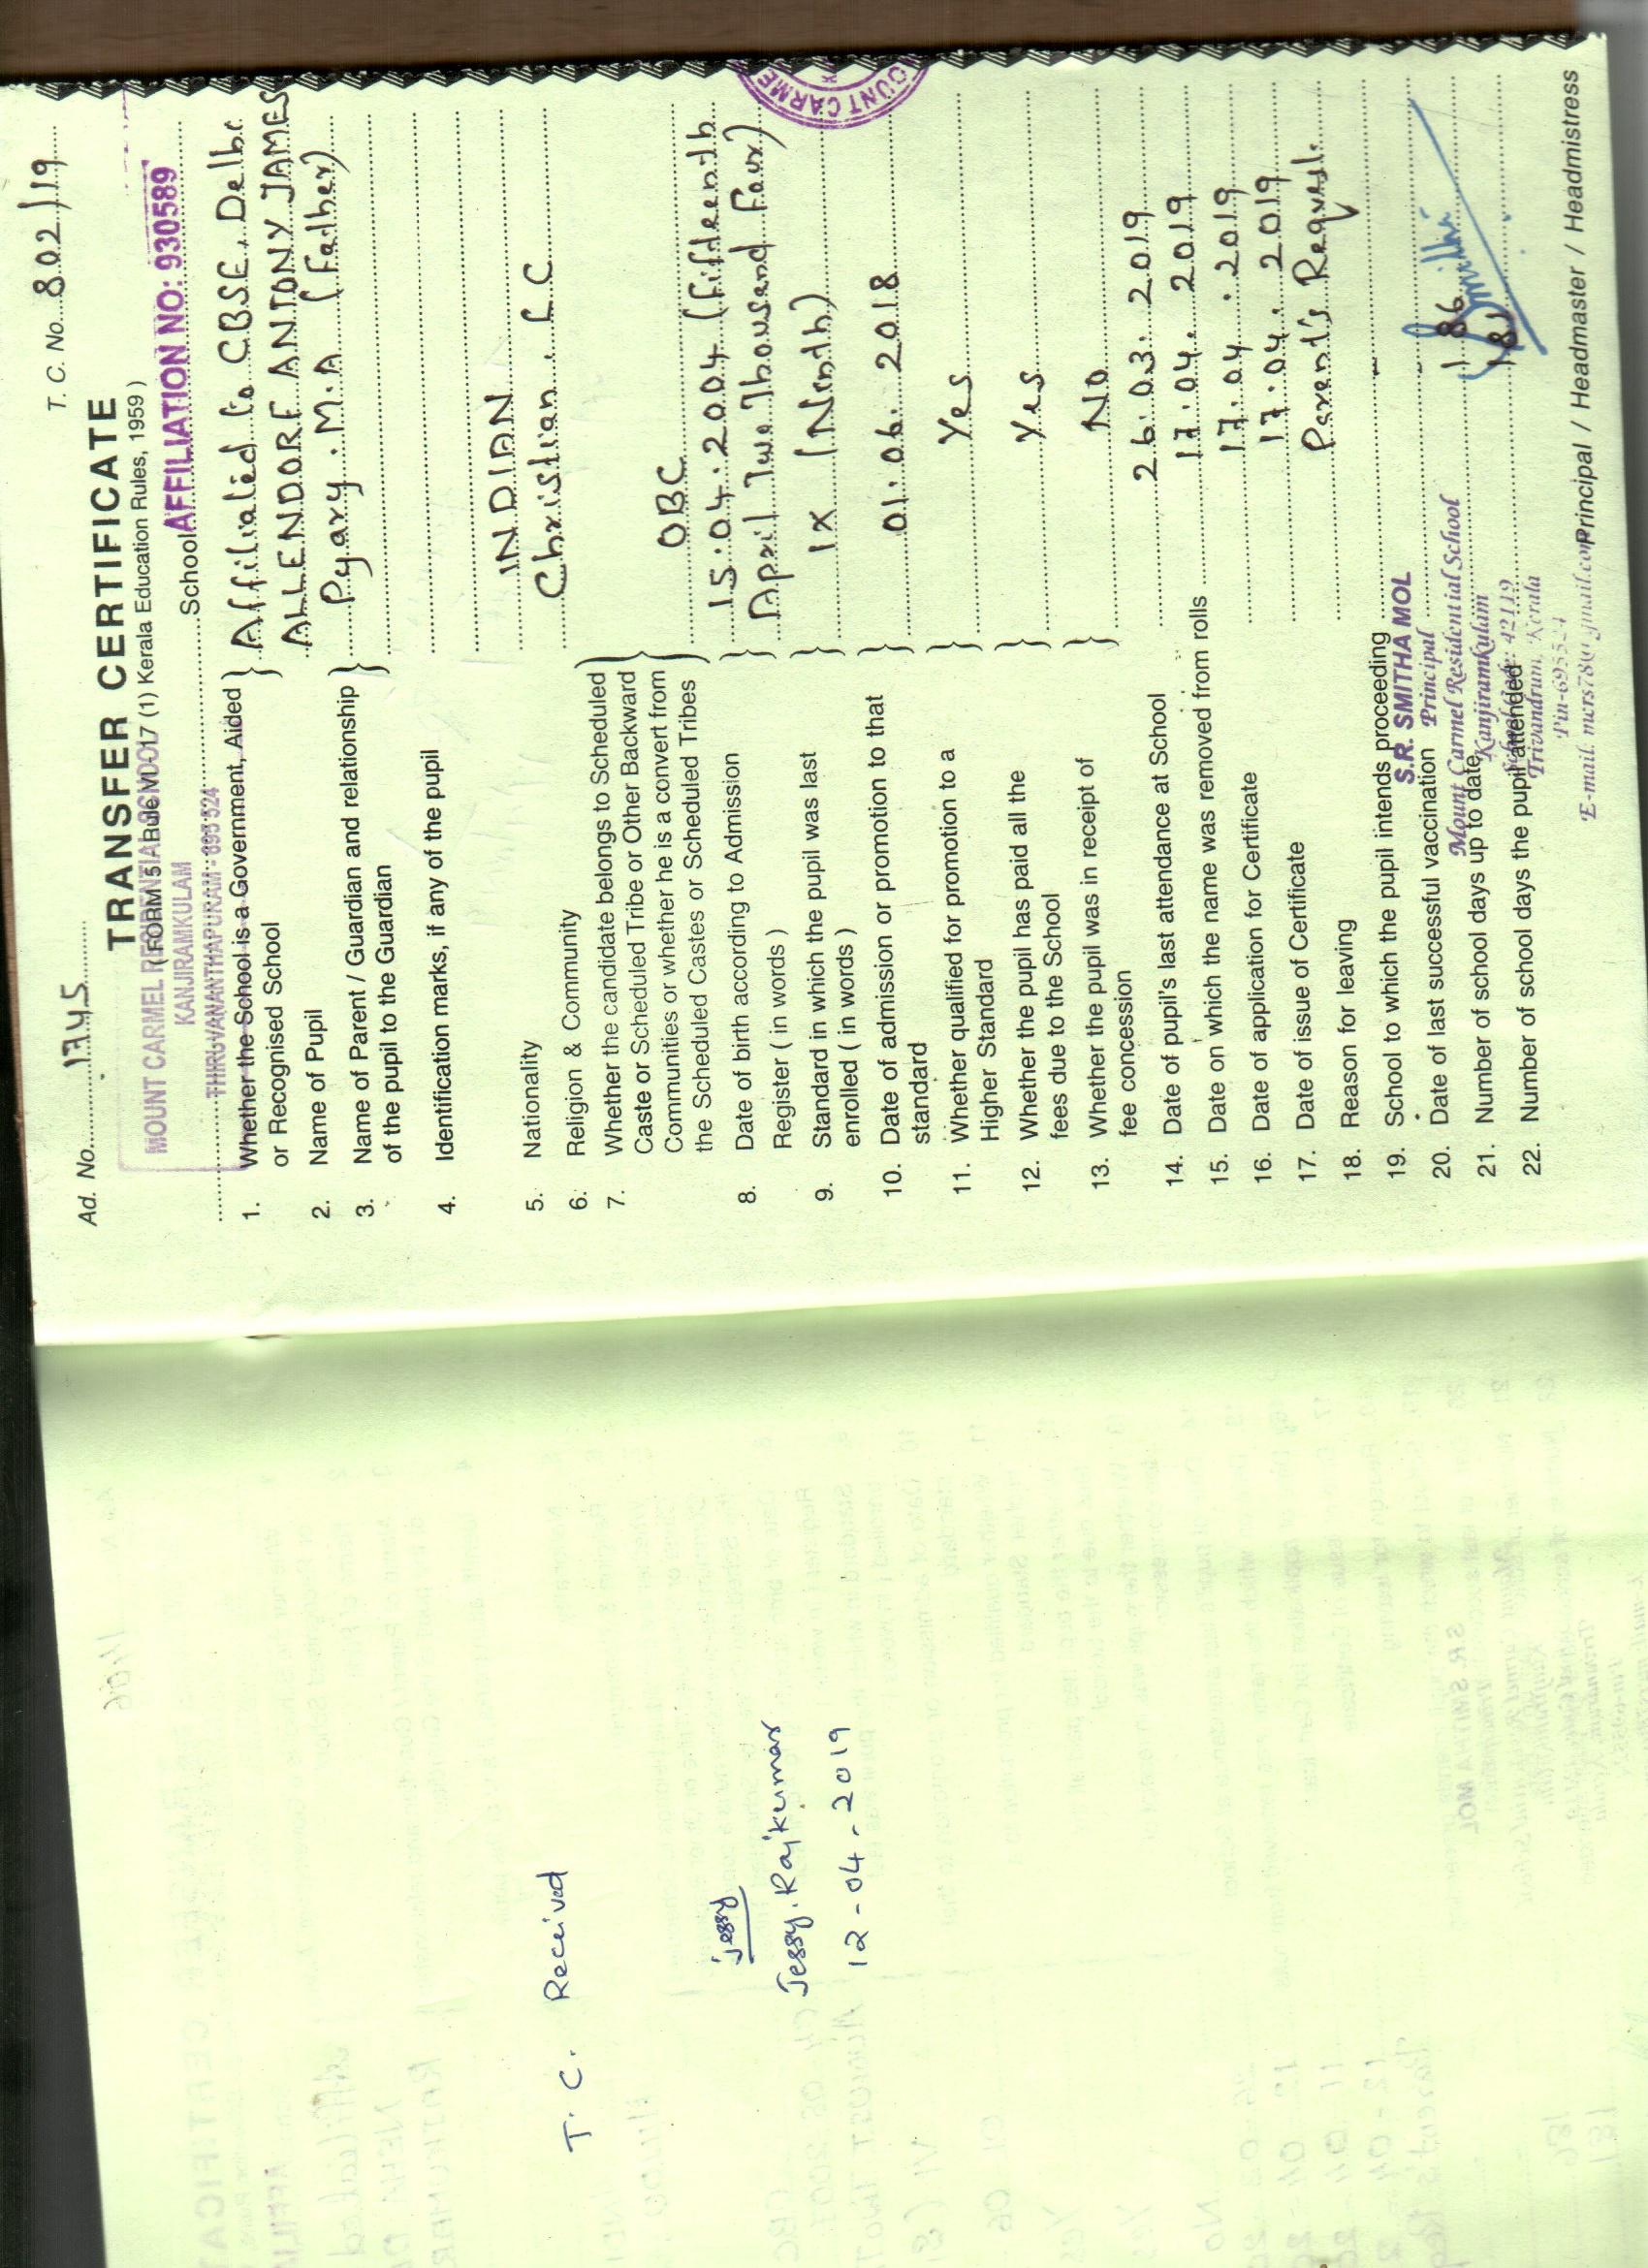 Ad. No. 1745 T. C. No. 802/19
TRANSFER CERTIFICATE
(FORM 5 Rule VI - 17 (1) Kerala Education Rules, 1959 )
MOUNT CARMEL RESIDENTIAL SCHOOL
KANJIRAMKULAM
THIRUVANANTHAPURAM - 695 524
School AFFILIATION NO: 930589
1. Whether the School is a Government, Aided or Recognised School } Affiliated to CBSE, Delhi
2. Name of Pupil ALLENDORF ANTONY JAMES
3. Name of Parent / Guardian and relationship of the pupil to the Guardian } Pyary . M . A (Father)
4. Identification marks, if any of the pupil
5. Nationality INDIAN
6. Religion & Community Christian, LC
7. Whether the candidate belongs to Scheduled
Caste or Scheduled Tribe or Other Backward
Communities or whether he is a convert from
the Scheduled Castes or Scheduled Tribes } OBC
8. Date of birth according to Admission
Register ( in words ) } 15.04.2004 (Fifteenth
April Two Thousand Four)
9. Standard in which the pupil was last
enrolled ( in words ) } IX (Ninth)
10. Date of admission or promotion to that
standard } 01.06.2018
11. Whether qualified for promotion to a
Higher Standard } Yes
12. Whether the pupil has paid all the
fees due to the School } Yes
13. Whether the pupil was in receipt of
fee concession } No
14. Date of pupil's last attendance at School 26.03.2019
15. Date on which the name was removed from rolls 17.04.2019
16. Date of application for Certificate 17.04.2019
17. Date of issue of Certificate 17.04.2019
18. Reason for leaving Parent's Request
19. School to which the pupil intends proceeding -
20. Date of last successful vaccination
21. Number of school days up to date 186
22. Number of school days the pupil attended 181
S.R. SMITHA MOL
Principal
Mount Carmel Residential School
Kanjiramkulam
School Code: 42119
Trivandrum, Kerala
Pin-695524
Smitha
Principal / Headmaster / Headmistress
MOUNT CARME
T. C. Received
Jessy
Jessy. Rajkumar
12-04-2019